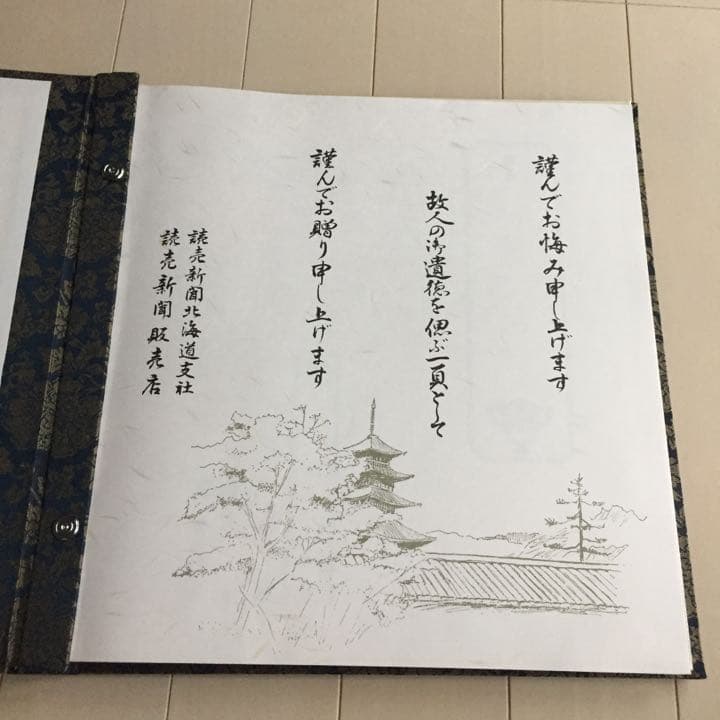 謹んでお悔み申し上げます
故人の御遺徳を偲ぶ一頁として
謹んでお贈り申し上げます
読売新聞北海道支社
読売新聞販売店